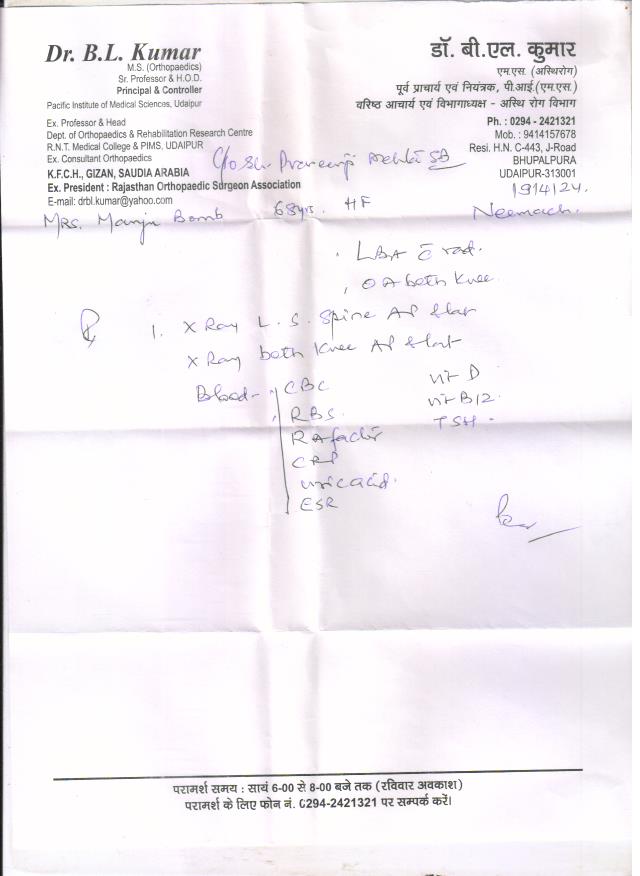 Dr. B.L. Kumar
M.S. (Orthopaedics)
Sr. Professor & H.O.D.
Principal & Controller
Pacific Institute of Medical Sciences, Udaipur
Ex. Professor & Head
Dept. of Orthopaedics & Rehabilitation Research Centre
R.N.T. Medical College & PIMS, UDAIPUR
Ex. Consultant Orthopaedics
K.F.C.H., GIZAN, SAUDIA ARABIA
Ex. President : Rajasthan Orthopaedic Surgeon Association
E-mail: drbl.kumar@yahoo.com
डॉ. बी.एल. कुमार
एम.एस. (अस्थिरोग)
पूर्व प्राचार्य एवं नियंत्रक, पी.आई.(एम.एस.)
वरिष्ठ आचार्य एवं विभागाध्यक्ष - अस्थि रोग विभाग
Ph. : 0294 - 2421321
Mob. : 9414157678
Resi. H.N. C-443, J-Road
BHUPALPURA
UDAIPUR-313001
C/o Sh. Praveenji Mehta SB
19/4/24.
Mrs. Manju Bomb 68yrs. HF Neemach.
LBA c̄ rad.
OA both Knee
Rx 1. X Ray L. S. Spine AP & Lat
X Ray both Knee AP & Lat
Blood - CBC Vit D
RBS. Vit B12.
RA factor TSH -
CRP
uric acid.
ESR
परामर्श समय : सायं 6-00 से 8-00 बजे तक (रविवार अवकाश)
परामर्श के लिए फोन नं. 0294-2421321 पर सम्पर्क करें।